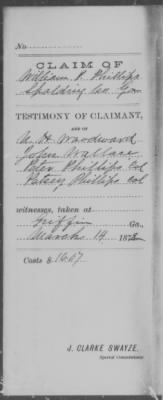 No.
CLAIM OF
William R. Phillips
Spalding Co. Ga.
TESTIMONY OF CLAIMANT,
AND OF
A. H. Woodward
John Wallace
Peter Phillips Col
Patsey Phillips Col
witnesses, taken at
Griffin Ga.,
March 14 187
Costs $ 16.67
J. CLARKE SWAYZE,
Special Commissioner.